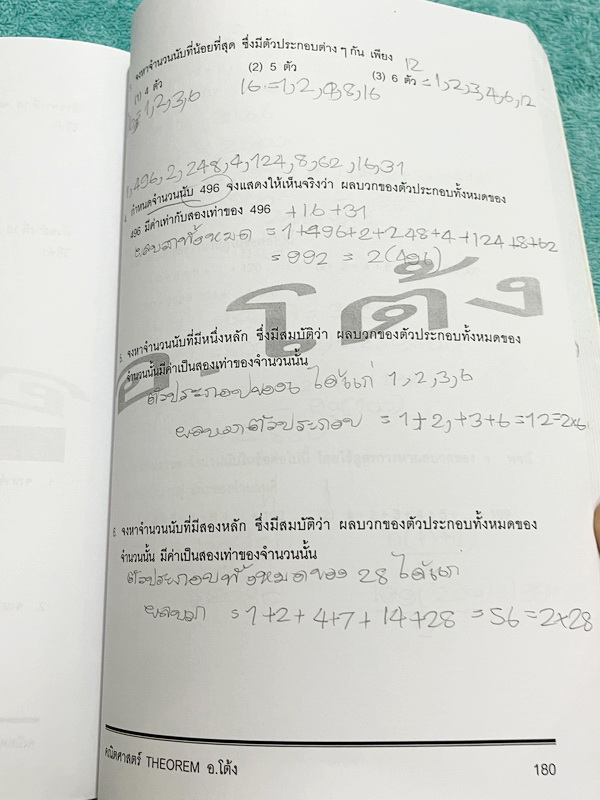 จงหาจำนวนนับที่น้อยที่สุด ซึ่งมีตัวประกอบต่าง ๆ กัน เพียง 12
(1) 4 ตัว (2) 5 ตัว (3) 6 ตัว = 1,2,3,4,6,12
1,2,3,6 16 = 1,2,4,8,16
1,496,2,248,4,124,8,62,16,31
4. กำหนดจำนวนนับ 496 จงแสดงให้เห็นจริงว่า ผลบวกของตัวประกอบทั้งหมดของ
496 มีค่าเท่ากับสองเท่าของ 496 +16+31
ผลบวกทั้งหมด = 1+496+2+248+4+124+8+62
= 992 = 2(496)
อ.โต้ง
5. จงหาจำนวนนับที่มีหนึ่งหลัก ซึ่งมีสมบัติว่า ผลบวกของตัวประกอบทั้งหมดของ
จำนวนนั้นมีค่าเป็นสองเท่าของจำนวนนั้น
ตัวประกอบของ ได้แก่ 1,2,3,6
ผลบวกตัวประกอบ = 1+2,+3+6=12=2x6
6. จงหาจำนวนนับที่มีสองหลัก ซึ่งมีสมบัติว่า ผลบวกของตัวประกอบทั้งหมดของ
จำนวนนั้น มีค่าเป็นสองเท่าของจำนวนนั้น
ตัวประกอบทั้งหมดของ 28 ได้แก่
ผลบวก = 1+2+4+7+14+28 = 56 = 2x28
คณิตศาสตร์ THEOREM อ.โต้ง 180